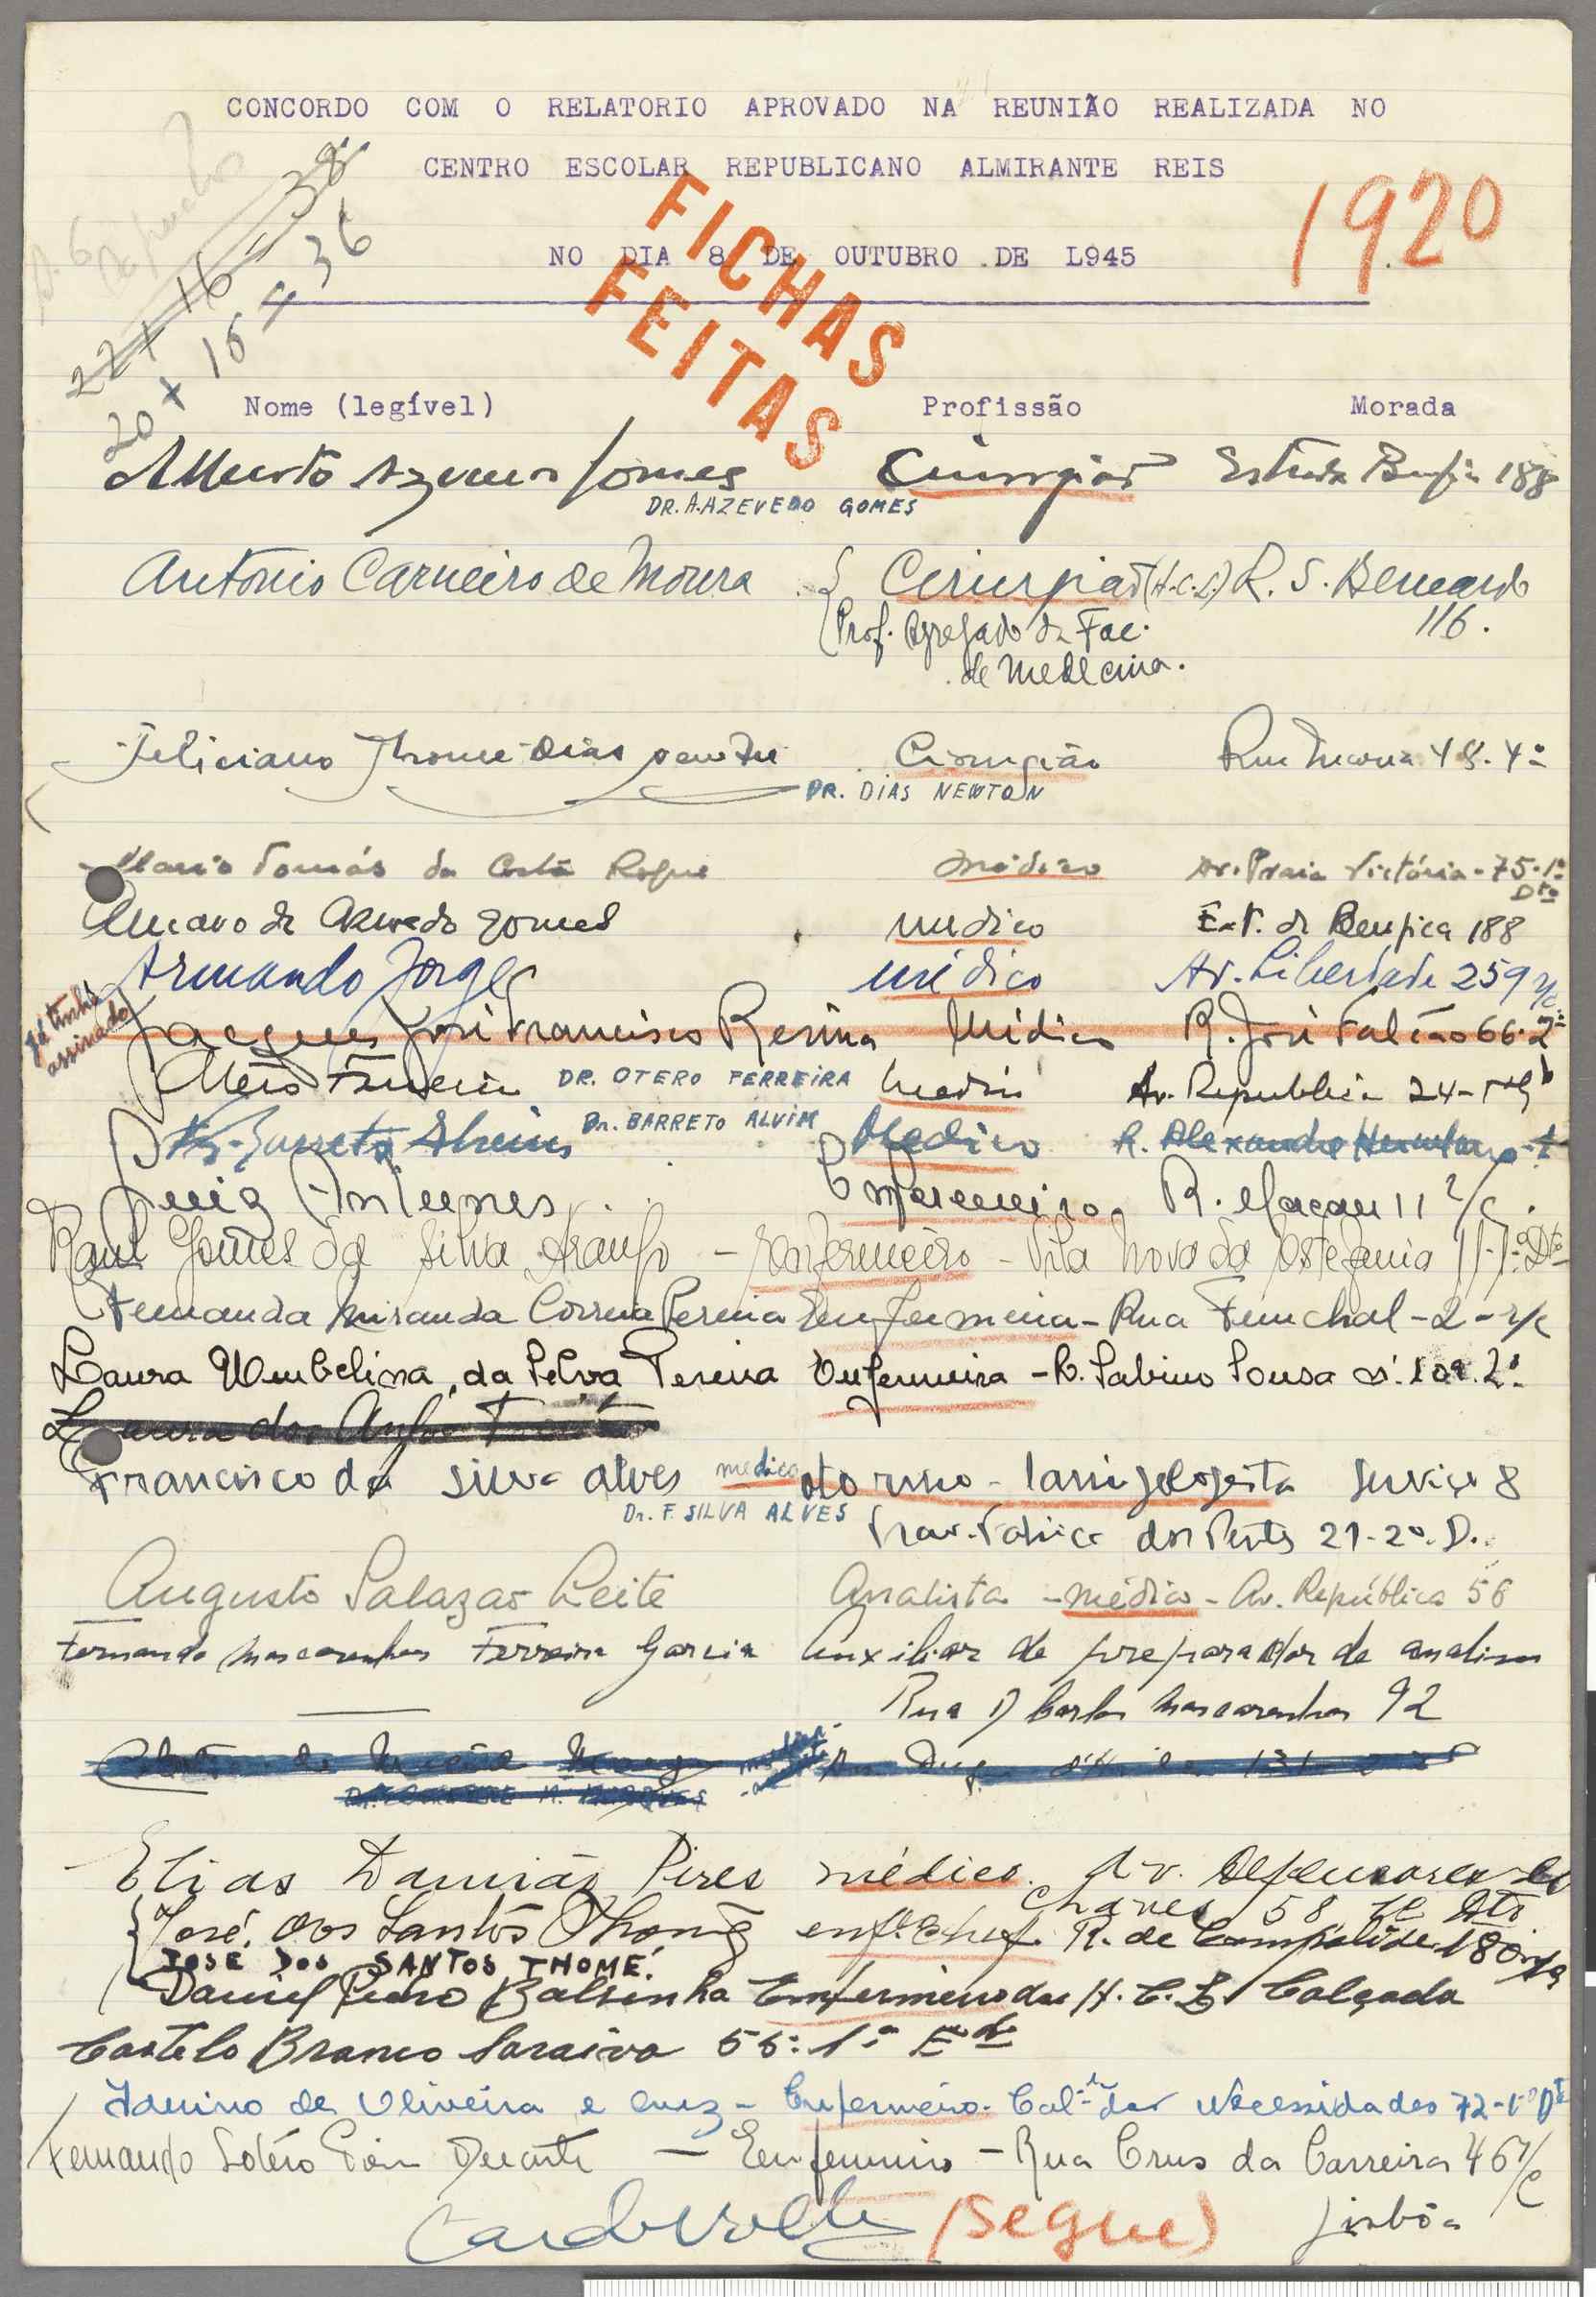 CONCORDO COM O RELATORIO APROVADO NA REUNIÃO REALIZADA NO
CENTRO ESCOLAR REPUBLICANO ALMIRANTE REIS
NO DIA 8 DE OUTUBRO DE L945
1920
FICHAS
FEITAS
22 + 16 = 38
20 + 16 = 36
Nome (legível) Profissão Morada
Alberto Azevedo Gomes Cirurgião Estrada Benfica 188
DR. A. AZEVEDO GOMES
António Carneiro de Moura Cirurgião (H.C.L.) R. S. Bernardo
Prof. Agregado da Fac. 116.
de Medecina.
Feliciano Thomé Dias Cirurgião Rua 48. 4º
DR. DIAS NEWTON
Mario Tomás da Costa Roque médico Av. Praia Victória - 75-1º
Dto
Amaro de Azevedo Gomes médico Est. de Benfica 188
Armando Jorge médico Av. Liberdade 259 r/c
Já tinha
assinado
Jacques José Francisco Resina Médico R. José Falcão 66-2º
Otero Ferreira DR. OTERO FERREIRA Medico Av. Republica 24
Barreto Alvim Dr. BARRETO ALVIM Medico R. Alexandre Herculano
Luiz Antunes Enfermeiro R. Macau 11 r/c.
Raul Gomes da Silva Araujo - Enfermeiro - Vila Nova da Estefania 11-1º Dto
Fernanda Miranda Correia Pereira Enfermeira - Rua Funchal - 2 - r/c
Laura Umbelina da Silva Pereira Enfermeira - R. Sabino Sousa 2º
Francisco da Silva Alves medico oto rino - laringologista Serviço 8
Dr. F. SILVA ALVES Trav. Fabrica dos Pentes 21-2º. D.
Augusto Salazar Leite Analista - médico - Av. República 56
Fernando Mascarenhas Ferreira Garcia Auxiliar de preparador de analises
Rua D Carlos Mascarenhas 92
Elias Damião Pires médico. Av. Defensores de
Chaves 58 Dto
José dos Santos Thomé enf. Chefe R. de Campolide 180
JOSÉ DOS SANTOS THOMÉ.
Daniel Pedro Balsinha Enfermeiro dos H. C. L. Calçada
Castelo Branco Saraiva 56-1º Edo
de Oliveira e Cruz - Enfermeiro - Calç. das Necessidades 72-1º Dto
Fernando Sotéro Duarte - Enfermeiro - Rua Cruz da Carreira 46 r/c
(Segue) Lisbôa